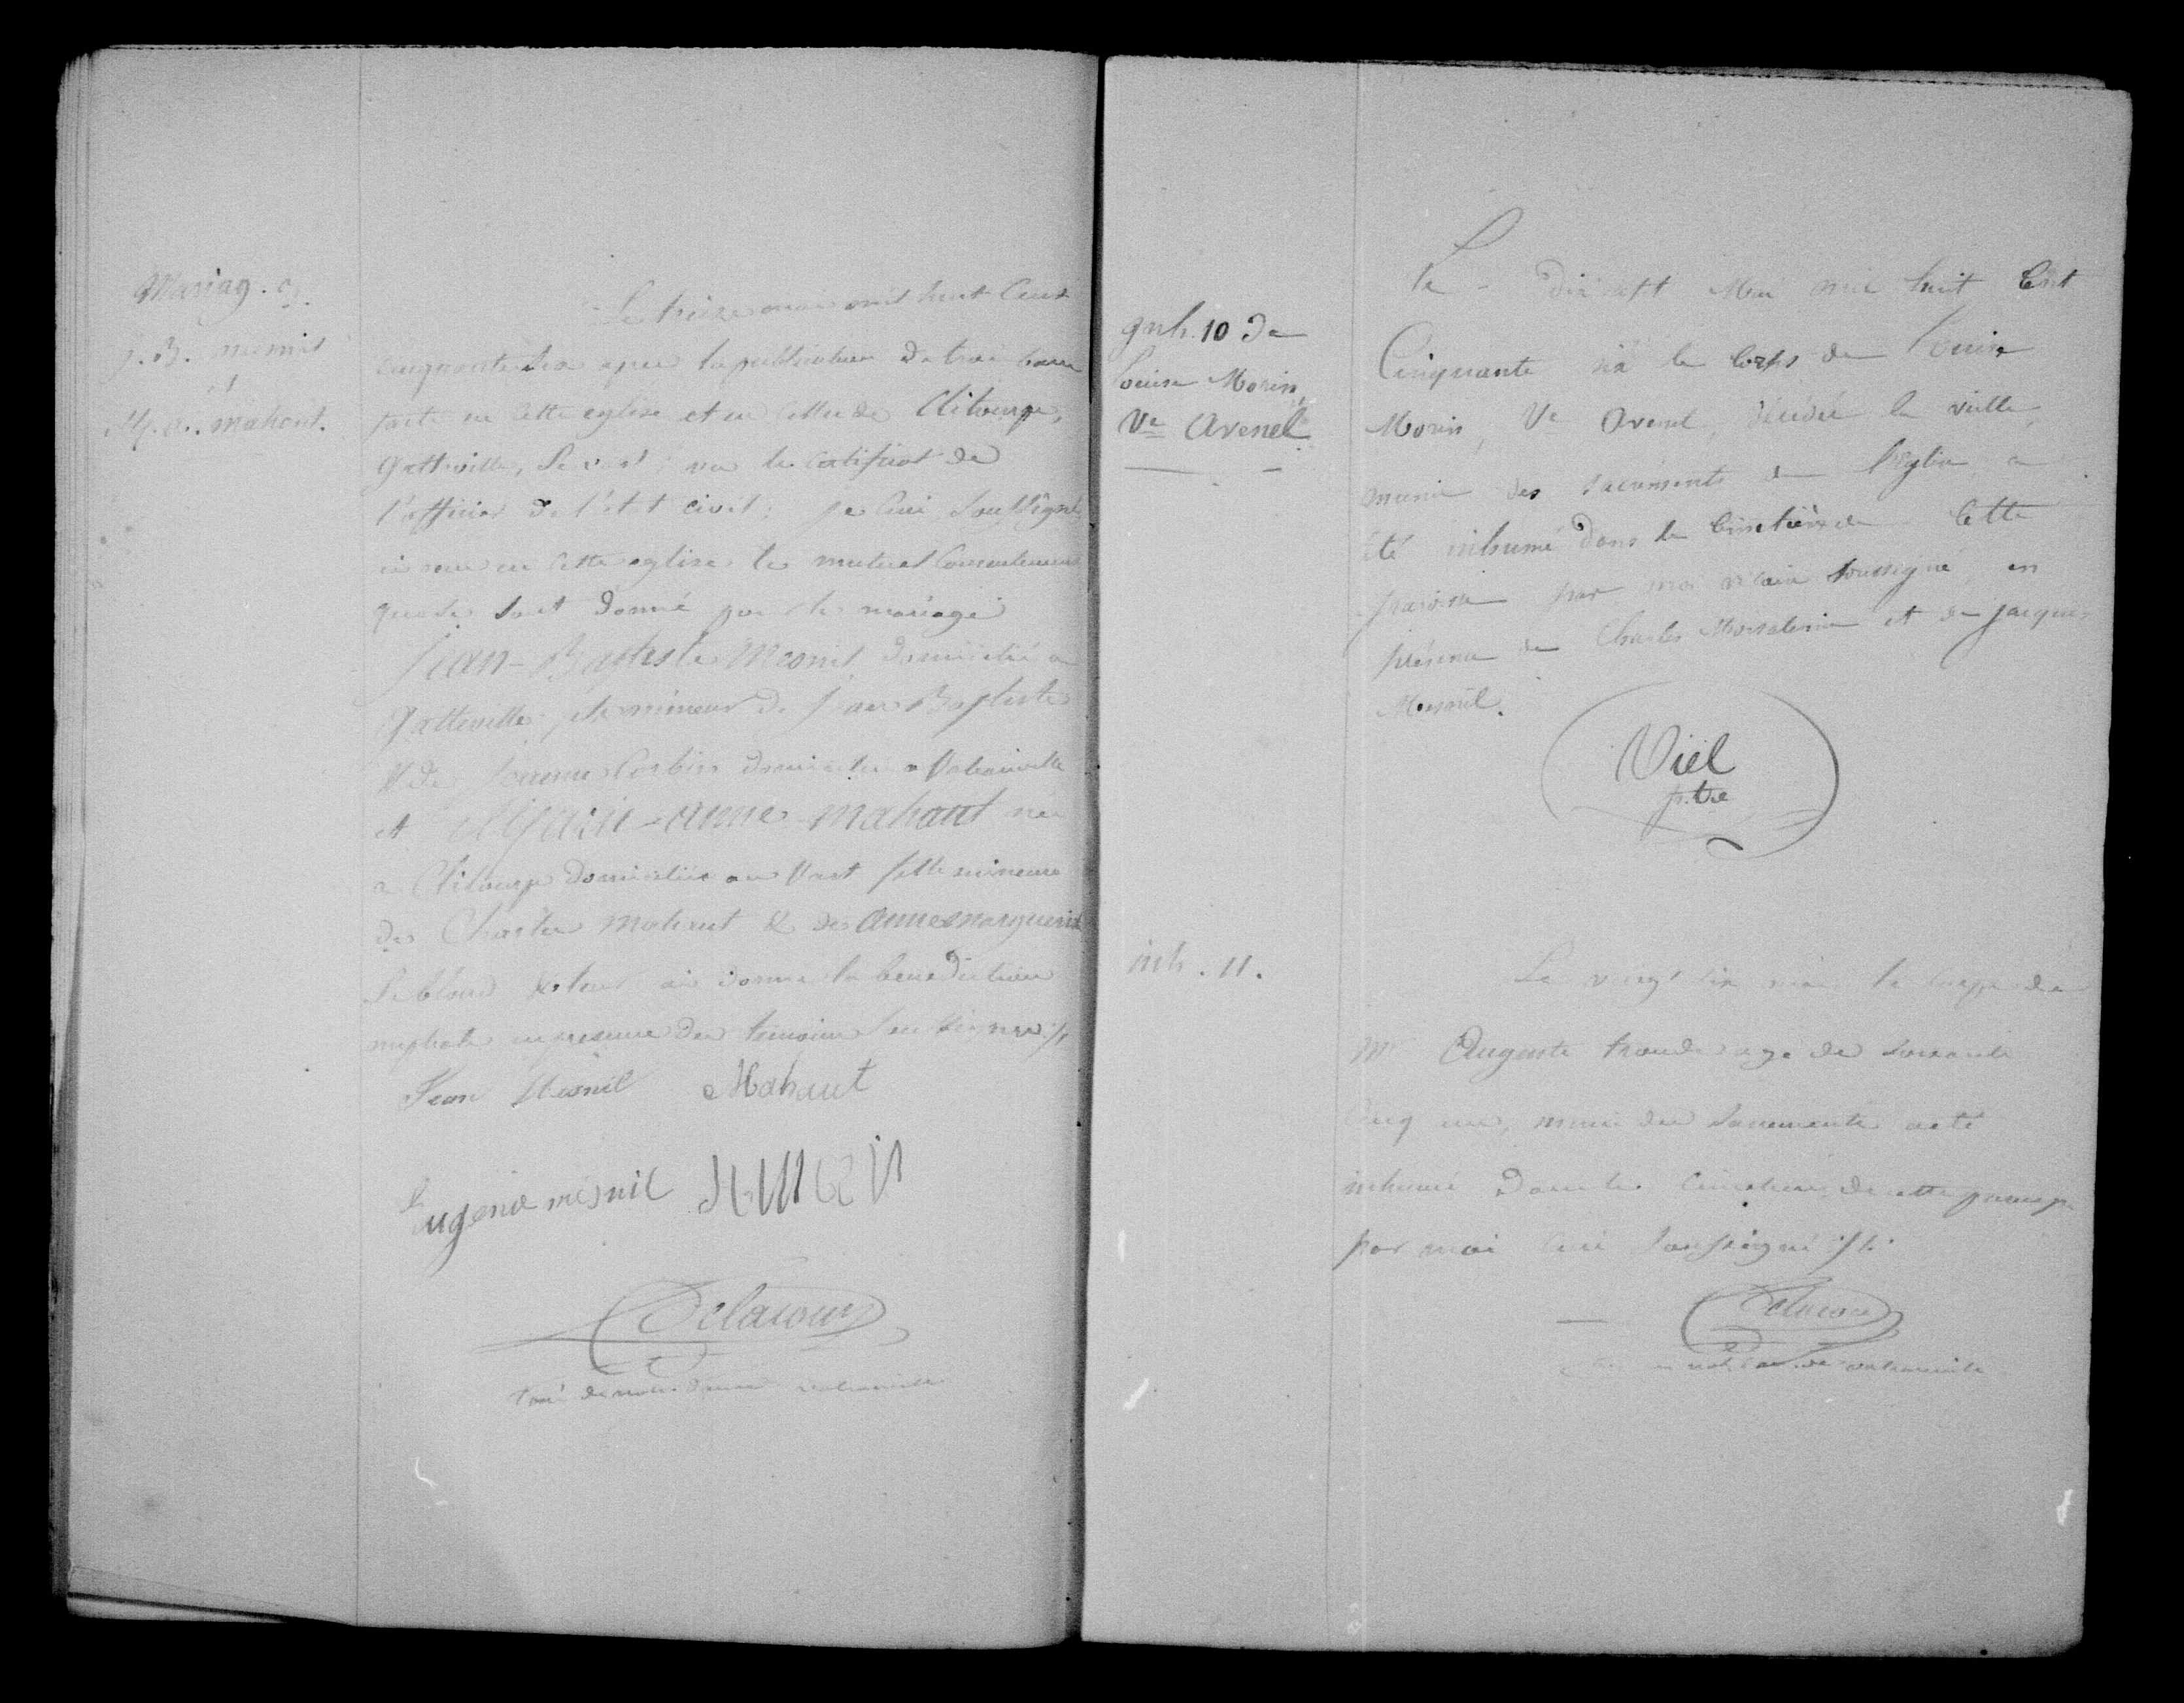 Mariag. 
J. B. mesnil
et
M. a. mahaut.
Le treize mai mil huit Cent
cinquante six apres la publication de trois bans
faite en cette eglise et en celle de Clitourps,
Gatteville, Le vast; vu le certificat de
l'officier de l'état civil; je Curé soussigné
ai recu en cette eglise le mutuel Consentement
que se sont donné pour le mariage
Jean-Baptiste Mesnil domicilié a
Gatteville, fils mineur de Jean Baptiste
& de Corbin domiciliés a Valcanville
et Marie-anne-mahaut née
a Clitourps domiciliée au Vast fille mineure
de Charles Mahaut & de anne marguerite
Leblond & leur ai donné la benediction
nuptiale en presence des temoins
Jean Mesnil Mahaut
Eugenie mesnil
Delacour
Curé de notre dame valcanville
inh. 10 De
Louise Morin,
Ve Avenel
Le dix sept Mai mil huit Cent
Cinquante six le Corps de Louise
Morin, Ve Avenel, décédée la veille,
munie des sacrements de l'église a
été inhumé dans le Cimetière de Cette
paroisse par moi vicaire soussigné en
présence de Charles et de jacques
Mesnil.
Viel
ptre
inh. 11.
Le vingt six mai le corps de
Mr Auguste agé de soixante
Cinq ans, muni des Sacrements a eté
inhumé dans le Cimetiere de cette paroisse
par moi Curé soussigné
Delacour
de valcanville